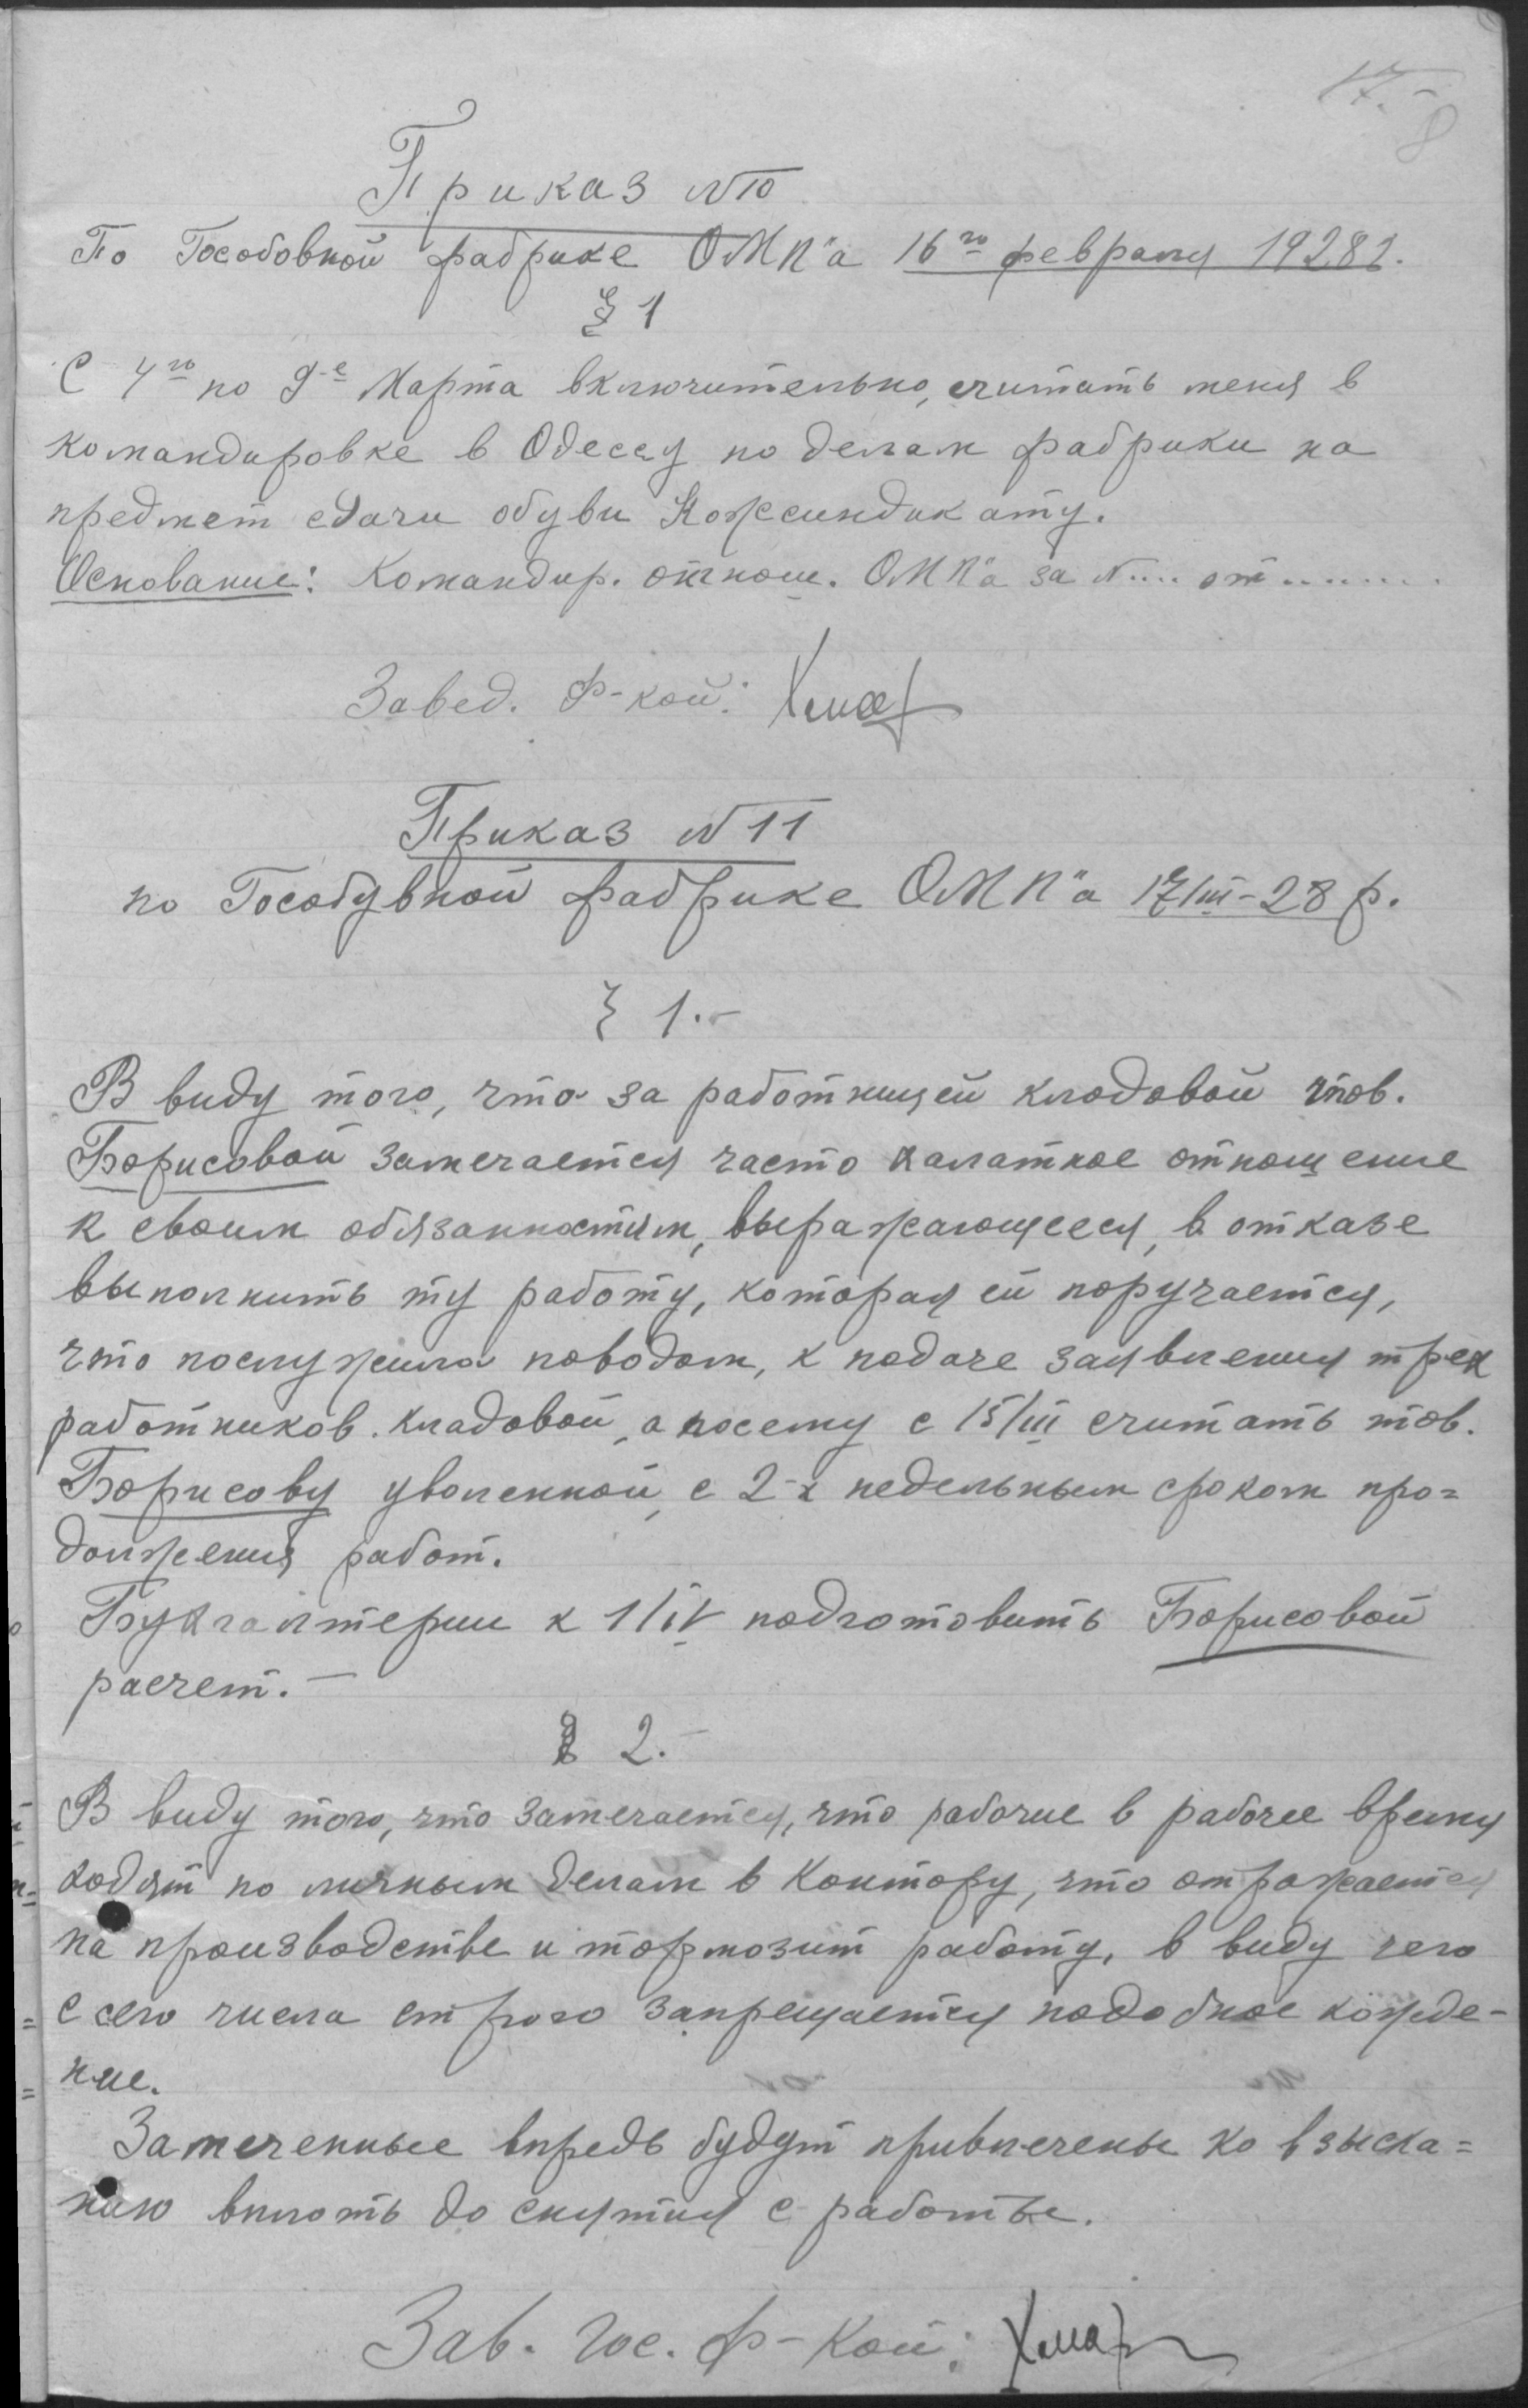 17.-
8
Приказ №10
По Гособовной фабрике ОМП"а 16го февраля 1928г.
§ 1
С 4го по 9-е Марта включительно, считать меня в
командировке в Одессу по делам фабрики на
предмет сдачи обуви Кожсиндикату.
Основание: Командир. отнош. ОМП"а за №.... от........
Завед. Ф-кой: Хмар
Приказ №11
по Гособувной фабрике ОМП"а 17/III-28 р.
§ 1.-
В виду того, что за работницей кладовой тов.
Борисовой замечается часто халатное отношение
к своим обязанностям, выражающееся, в отказе
выполнить ту работу, которая ей поручается,
что послужило поводом, к подаче заявления трех
работников кладовой, а посему с 15/III считать тов.
Борисову уволенной, с 2-х недельным сроком про=
должения работ.
Бухгалтерии к 1/IV подготовить Борисовой
расчет.-
§ 2.-
В виду того, что замечается, что рабочие в рабочее время
ходят по личным делам в контору, что отражается
на производстве и тормозит работу, в виду чего
с сего числа строго запрещается подобное хожде-
ние.
Замеченные впредь будут привлечены ко взыска=
нию вплоть до снятия с работы.
Зав. Гос. Ф-кой: Хмар